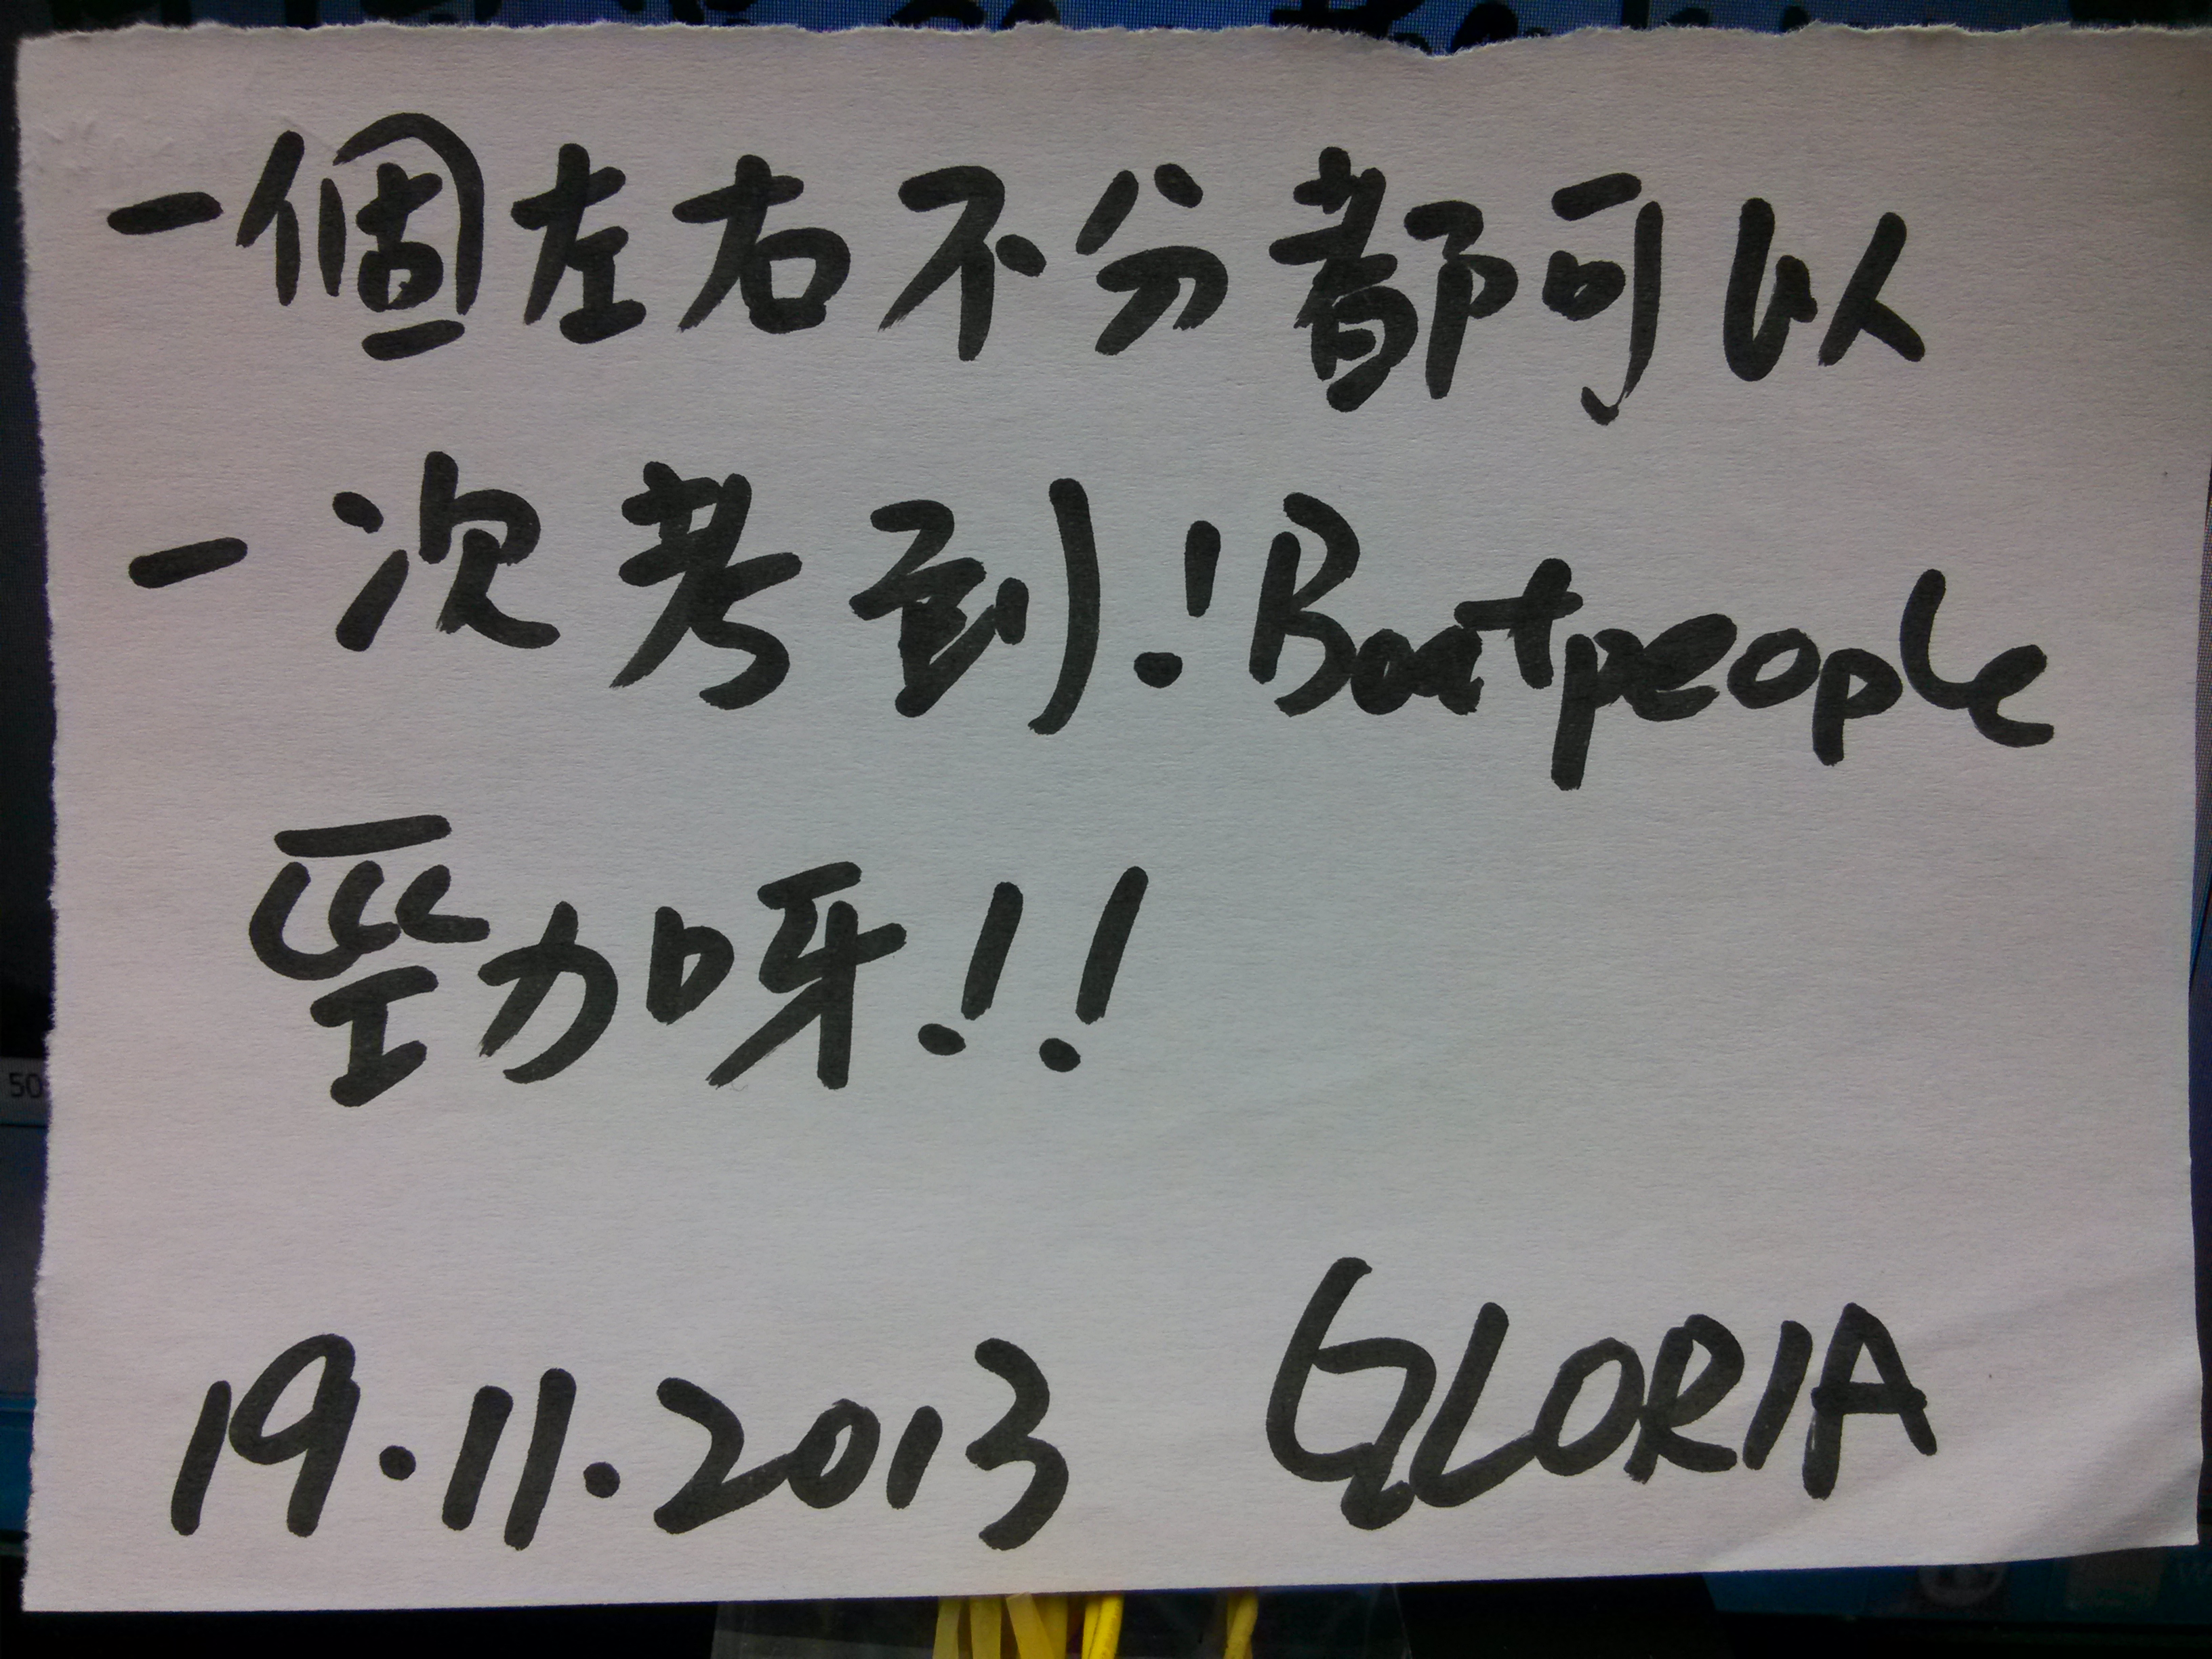 一個左右不分都可以
一次考到!Boatpeople
勁呀!!
19.11.2013 GLORIA